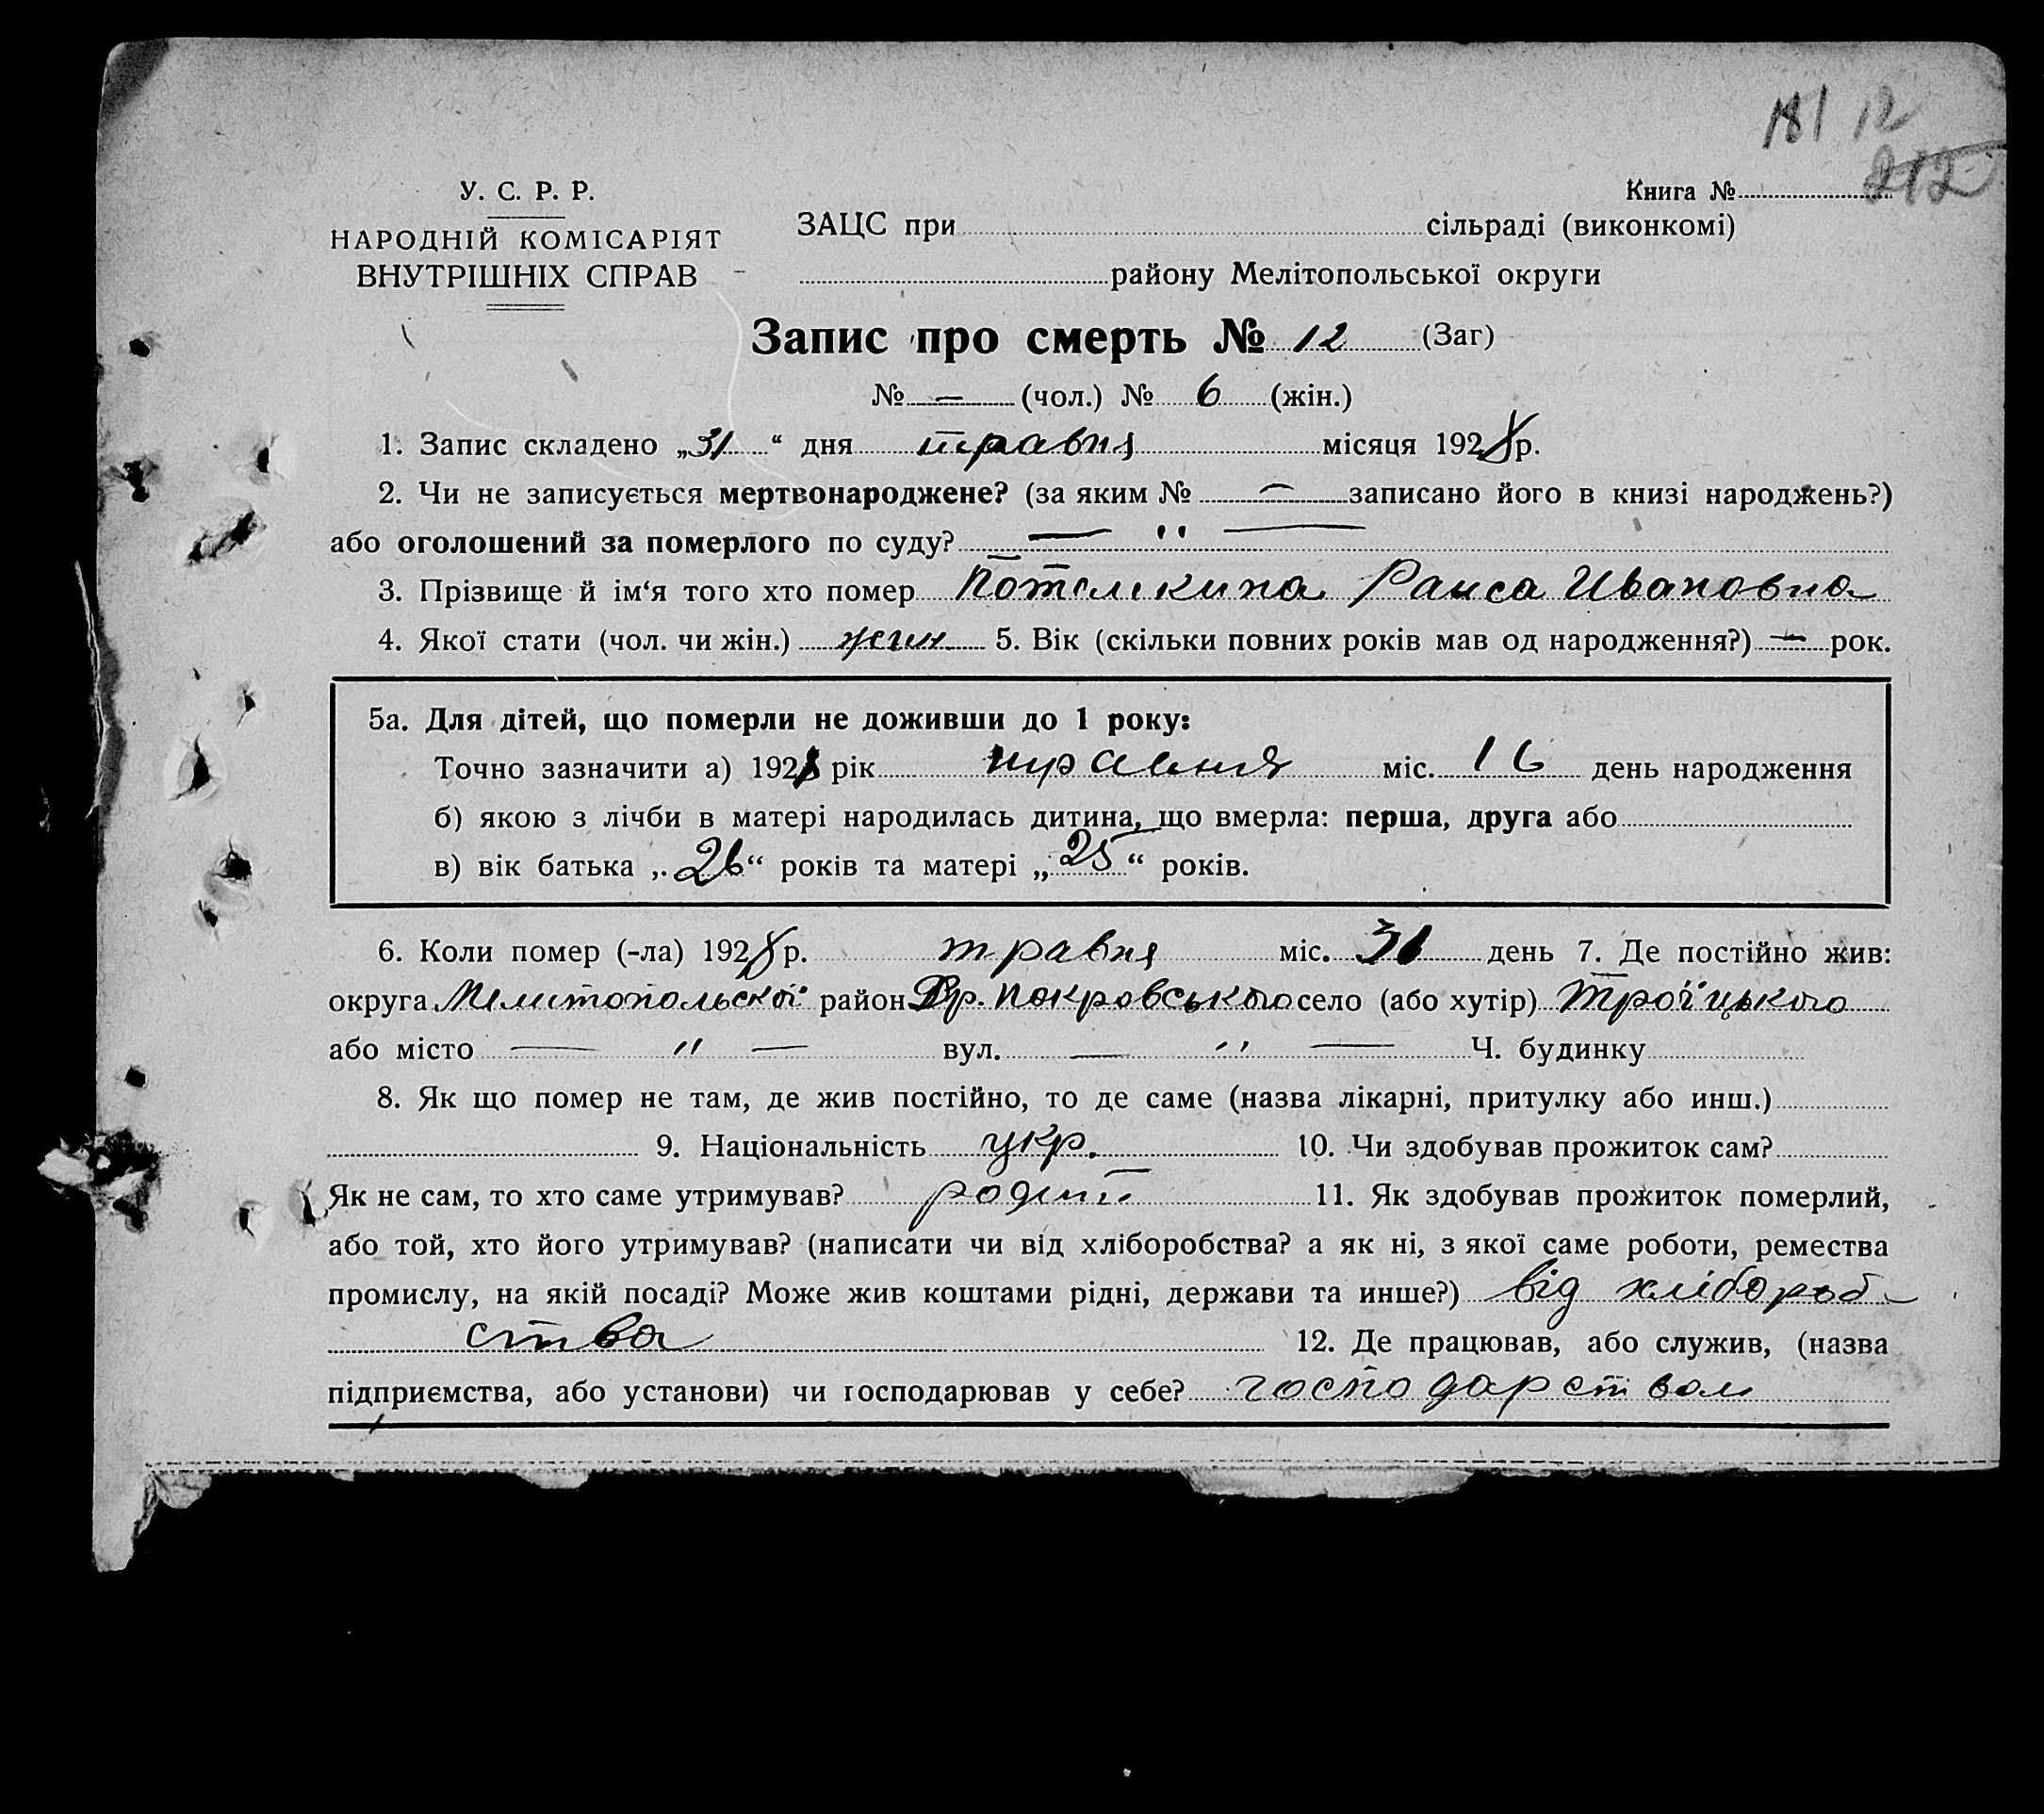 181 12
212
У. С. Р. Р.
Книга №
НАРОДНІЙ КОМІСАРІЯТ
ВНУТРІШНІХ СПРАВ
ЗАЦС при сільраді (виконкомі)
району Мелітопольської округи
Запис про смерть № 12 (Заг)
№ — (чол.) № 6 (жін.)
1. Запис складено „31“ дня травня місяця 1928 р.
2. Чи не записується мертвонароджене? (за яким № — записано його в книзі народжень?)
або оголошений за померлого по суду? — " —
3. Прізвище й ім‘я того хто помер Потемкина Раиса Ивановна
4. Якої стати (чол. чи жін.) жин. 5. Вік (скільки повних років мав од народження?) — рок.
5а. Для дітей, що померли не доживши до 1 року:
Точно зазначити а) 1928 рік травня міс. 16 день народження
б) якою з лічби в матері народилась дитина, що вмерла: перша, друга або
в) вік батька „26“ років та матері „25“ років.
6. Коли помер (-ла) 1928 р. травня міс. 31 день 7. Де постійно жив:
округа Мелитопольскої район Вр. Покровського село (або хутір) Троїцького
або місто — " — вул. — " — Ч. будинку
8. Як що помер не там, де жив постійно, то де саме (назва лікарні, притулку або инш.)
9. Національність укр. 10. Чи здобував прожиток сам?
Як не сам, то хто саме утримував? родит 11. Як здобував прожиток померлий,
або той, хто його утримував? (написати чи від хліборобства? а як ні, з якої саме роботи, ремества
промислу, на якій посаді? Може жив коштами рідні, держави та инше?) від хлібороб-
ства 12. Де працював, або служив, (назва
підприємства, або установи) чи господарював у себе? господарством